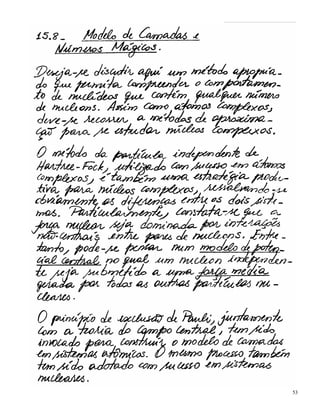 15.8_ Modelo de Camadas e
Números Mágicos.
Deseja-se discutir aqui um método apropria-
do que permita compreender o comportamen-
to de nuclídeos que contêm qualquer número
de nucleons. Assim como átomos complexos,
deve-se recorrer a métodos de aproxima-
ção para se estudar núcleos complexos.
O método da partícula independente de
Hartree-Fock, utilizado com sucesso em átomos
complexos, é também uma estratégia produ-
tiva para núcleos complexos, ressalvando-se
obviamente as diferenças entre os dois siste-
mas. Particularmente, constata-se que a
força nuclear seja dominada por interações
não-centrais entre pares de nucleons. Entre-
tanto, pode-se pensar num modelo de poten-
cial central no qual um nucleon independen-
te seja submetido a uma força média
gerada por todas as outras partículas nu-
cleares.
O princípio de exclusão de Pauli, juntamente
com a teoria do campo central, tem sido
invocado para construir o modelo de camadas
em sistemas atômicos. O mesmo processo também
tem sido adotado com sucesso em sistemas
nucleares.
53